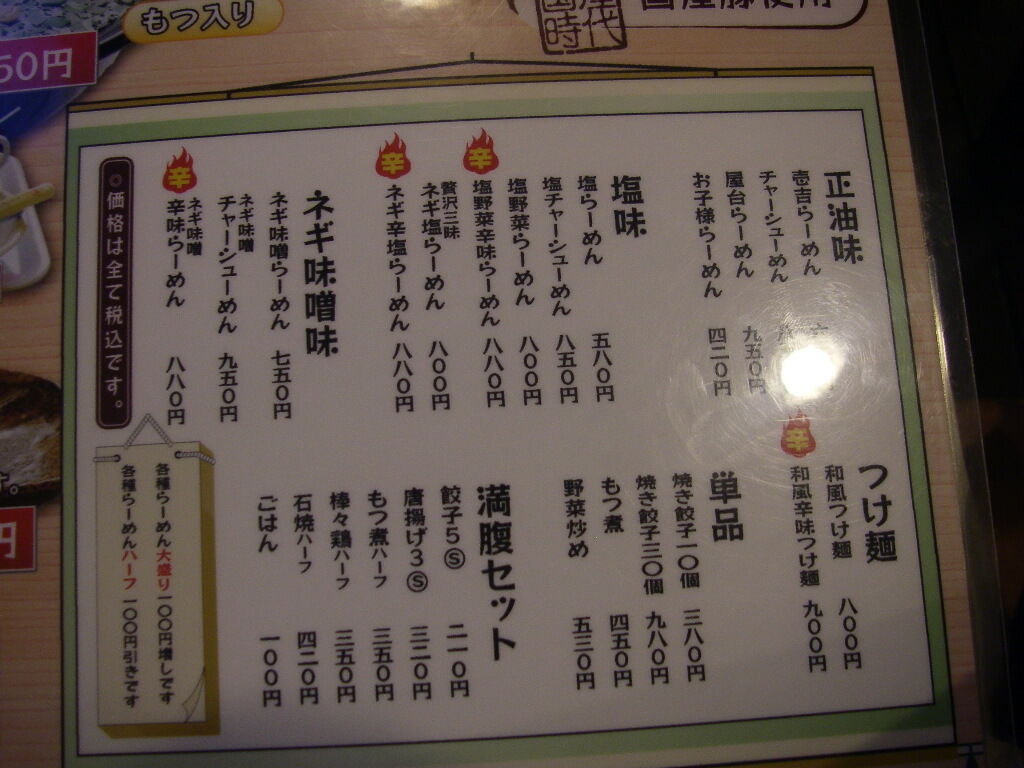 もつ入り
50円
正油味
壱吉らーめん
チャーシューめん
屋台らーめん 九五〇円
お子様らーめん 四二〇円
塩味
塩らーめん 五八〇円
塩チャーシューめん 八五〇円
塩野菜らーめん 八〇〇円
辛 塩野菜辛味らーめん 八八〇円
贅沢三味
ネギ塩らーめん 八〇〇円
辛 ネギ辛塩らーめん 八八〇円
ネギ味噌味
ネギ味噌らーめん 七五〇円
ネギ味噌
チャーシューめん 九五〇円
ネギ味噌
辛 辛味らーめん 八八〇円
◎価格は全て税込です。
つけ麺
和風つけ麺 八〇〇円
辛 和風辛味つけ麺 九〇〇円
単品
焼き餃子一〇個 三八〇円
焼き餃子三〇個 九八〇円
もつ煮 四五〇円
野菜炒め 五三〇円
満腹セット
餃子5Ⓢ 二一〇円
唐揚げ3Ⓢ 三二〇円
もつ煮ハーフ 三五〇円
棒々鶏ハーフ 三五〇円
石焼ハーフ 四二〇円
ごはん 一〇〇円
各種らーめん大盛り一〇〇円増しです
各種らーめんハーフ一〇〇円引きです
す。
円